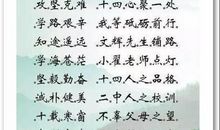 攻坚克难,十四心聚一处,
学路艰辛,我等砥砺前行,
知途遥远,文辉先生铺路,
学海苍茫,小翟老师点灯,
坚毅勤奋,十四人之品格,
诚朴健美,二中人之校训,
十载寒窗,不辜父母之望,